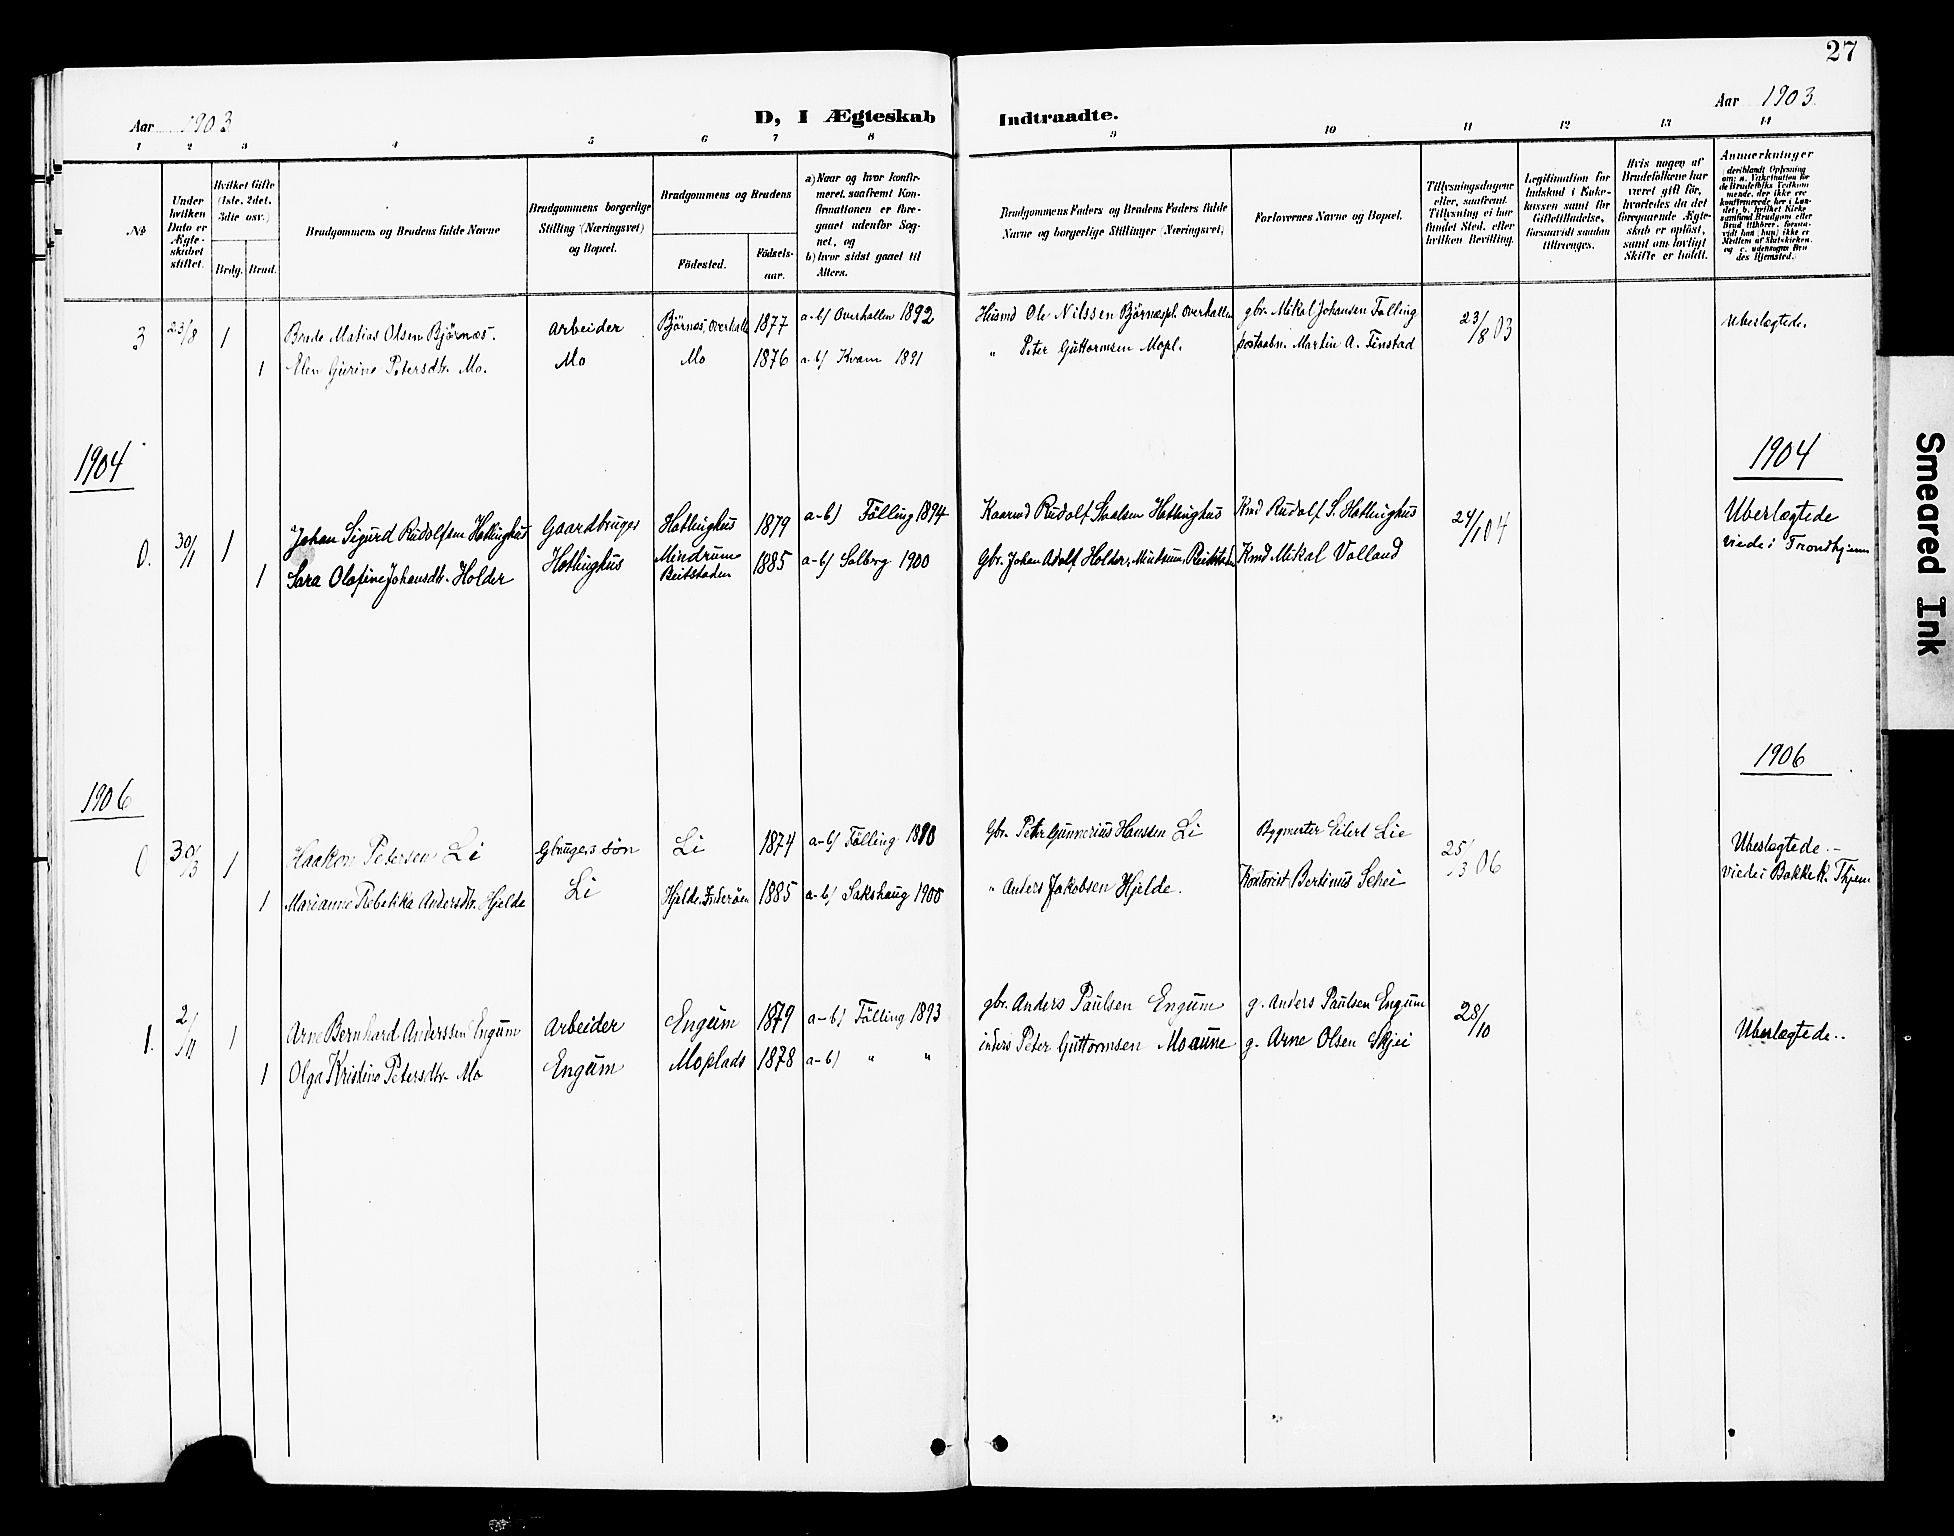 27
Aar 1903
D, I Ægteskab
Indtraadte.
Aar 1903.
1 2 3 4 5 6 7 8
9 10 11 12 13 14
No
Under hvilken Dato er Ægteskabet stiftet.
Hvilket Gifte (1ste, 2det, 3die osv.)
Brdg. Brud.
Brudgommens og Brudens fulde Navne
Brudgommens borgerlige Stilling (Næringsvei) og Bopæl.
Brudgommens og Brudens
Fødested.
Fødselsaar.
a) Naar og hvor konfirmeret, saafremt Konfirmationen er foregaaet udenfor Sognet, og
b) hvor sidst gaaet til Alters.
Brudgommens Faders og Brudens Faders fulde Navne og borgerlige Stillinger (Næringsvei)
Forlovernes Navne og Bopæl.
Tillysningsdagene eller, saafremt Tillysning ei har fundet Sted, efter hvilken Bevilling.
Legitimation for Indskud i Enkekassen samt for Giftetilladelse, forsaavidt saadan tiltrenges.
Hvis nogen af Brudefolkene har været gift før, hvorledes da det foregaaende Ægteskab er opløst, samt om lovligt Skifte er holdt.
Anmerkninger (deriblandt Oplysning om: a. Vakcination for de Brudefolks Vedkommende, der ikke ere konfirmerede her i Landet; b. hvilket Kirkesamfund Brudgom eller Brud tilhører, forsaavidt han (hun) ikke er Medlem af Statskirken, og c. udensogns Brudes Hjemsted.)
3 23/8 1 Brude Matias Olsen Bjørnæs. Arbeider Bjørnes, Overhalle 1877 a-b) Overhallen 1892 Husmd Ole Nilssen Bjørnæspl. Overhallen gbr. Mikal Johansen Følling 23/8 03 Ubeslægtede.
1 Elen Gurine Petersdtr. Mo. Mo Mo 1876 a-b) Kvam 1891 " Peter Guttormsen Mopl. postaabn. Martin A. Finstad
1904
1904
0. 30/1 1 Johan Sigurd Rudolfsen Hatlinghus Gaardbruger Hatlinghus 1879 a-b) Følling 1894 Kaarmd Rudolf Hatlinghus Kmd Rudolf S. Hatlinghus 24/1 04 Ubeslægtede
viede i Trondhjem
1 Sara Olafine Johansdtr. Holder Hatlinghus Mindrum Beitstaden 1885 a-b) Solberg 1900 Gbr. Johan Adolf Holder, Beitstaden Kmd. Mikal Volland
1906
1906
0 30/3 1 Haakon Petersen Li Gbrugers søn Li 1874 a-b) Følling 1890 Gbr. Peter Gunnerius Hanssen Li Bygmester Eilert Lie 25/3 06 Ubeslægtede.-
viede i Bakke K. Thjem
1 Marianne Rebekka Andersdtr. Hjelde Li Hjelde, Inderøen 1885 a-b) Sakshaug 1900 " Anders Jakobsen Hjelde. Kontorist Bertinus Schei
1. 2/11 1 Arne Bernhard Anderssen Engum Arbeider Engum 1879 a-b) Følling 1893 gbr. Anders Paulsen Engum g. Anders Paulsen Engum 28/10 Ubeslægtede..
1 Olga Kristine Petersdtr. Mo Engum Moplads 1878 a-b) " " Peter Guttormsen Moaune g. Arne Olsen Skjei
Smeared Ink